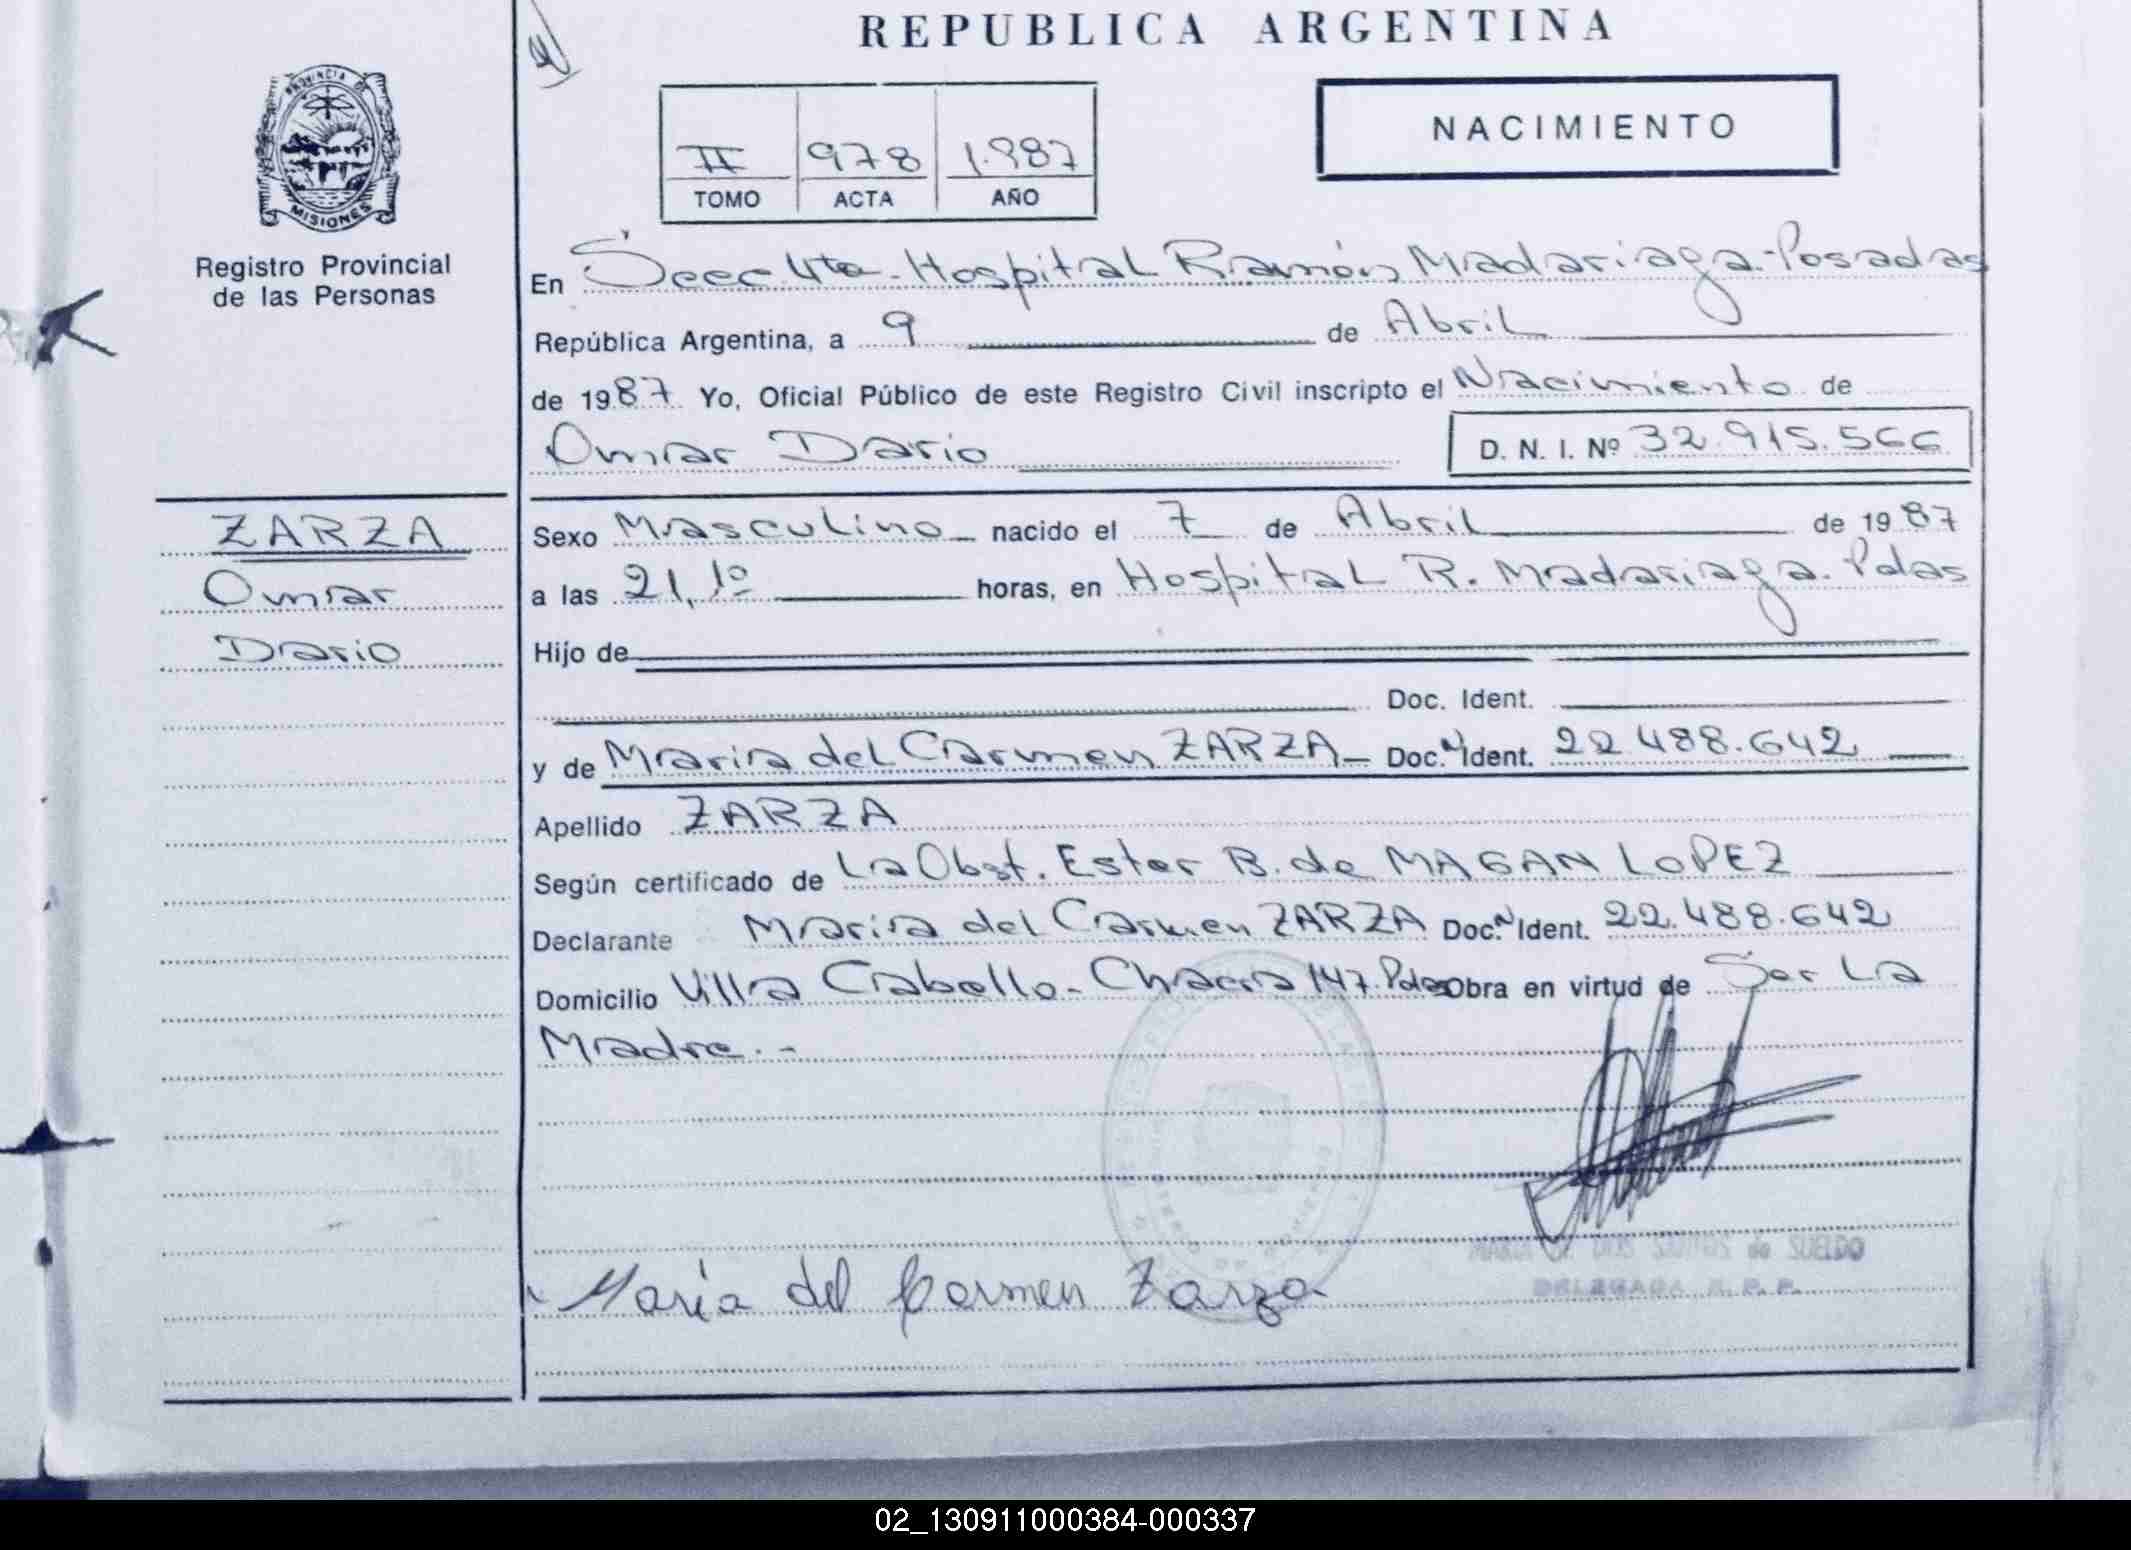 REPUBLICA ARGENTINA
PROVINCIA DE
MISIONES
Registro Provincial
de las Personas
II 978 1.987
TOMO ACTA AÑO
NACIMIENTO
En Secc 4ta - Hospital Ramón Madariaga - Posadas
República Argentina, a 9 de Abril
de 1987 Yo, Oficial Público de este Registro Civil inscripto el Nacimiento de
Omar Dario D. N. I. Nº 32.915.566
ZARZA
Omar
Dario
Sexo Masculino nacido el 7 de Abril de 1987
a las 21,10 horas, en Hospital R. Madariaga. Pdas
Hijo de
Doc. Ident.
y de Maria del Carmen ZARZA Doc. N Ident. 22.488.642
Apellido ZARZA
Según certificado de La Obst. Ester B. de MAGAN LOPEZ
Declarante Maria del Carmen ZARZA Doc. N Ident. 22.488.642
Domicilio Villa Cabello - Chacra 147. Pdas Obra en virtud de Ser La
Madre. -
de SUELDO
DELEGADA R. P. P.
María del Carmen Zarza
02_130911000384-000337